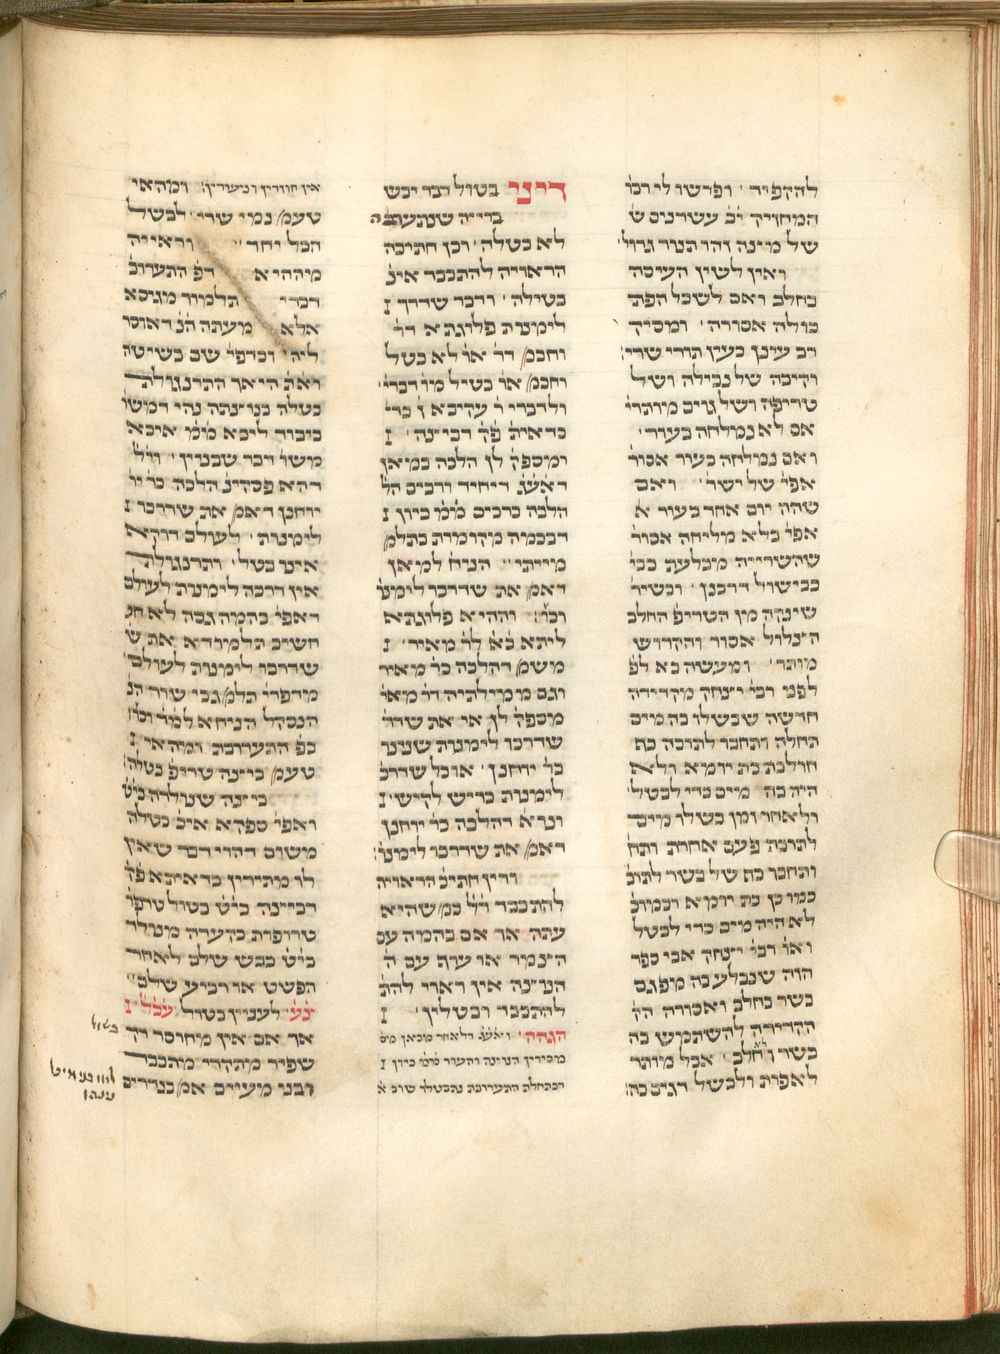 להקפיד׳ ופרשו לי רבו׳
המחזיק י״ב עשרונים ש׳
של מינה וזהו תנור גדול׳
ואין לשין העיסה
בחלב ואם לש כל הפת
כולה אסורה׳ ומסיק
רב עינן כעין תורי שרי׳
וקיבה של נבילה ושל
טריפה ושל גוים מותרי׳
אם לא נמלחה בעור׳
ואם נמלחה בעור אסור
אפי׳ של ישר׳ ואם
שהה יום אחד בעור א
אפי׳ בלא מליחה אסור
שהשרייה מבלעת בכי
כבישול דרבנן׳ וכשיר
שינקה מן הטריפ׳ החלב
הצלול אסור והקרוש
מותר׳ ומעשה בא לפ׳
לפני רבי׳ יצחק מקדירה
חדשה שבשלו בה מים
תחלה ותחבו לתוכה כף
חולבת בת יומא ולא
היה בה מים כדי לבטל׳
ולאחר זמן בשלו מים
לתוכה פעם אחרת ותח׳
ותחבו כף של בשר לתוכ׳
כמו כן בת יומא וכמוכ׳
לא היה מים כדי לבטל
ואו׳ רבי׳ יצחק אבי ספר
הזה שנבלע בה מפגם
בשר בחלב ואסורה הק׳
הקדירה להשתמש בה
בשר וחלב׳ אבל מותר
לאפות ולבשל דגים בה׳
דיני בטול דבר יבש
ביריה שנתערבה
לא בטלה׳ וכן חתיכה
הראויה להתכבד אינ׳
בטילה׳ ודבר שדרך נ
לימנות פלוגתא דר׳
וחכמ׳ דר׳ או׳ לא בטל
וחכמ׳ או׳ בטיל מו׳ דברי׳
ולדברי ר׳ עקיבא ו׳ כד׳
כדאית׳ פ׳ק דביצה׳ נ
ומספק׳ לן הלכה כמאן
דאע״ג דיחיד ורבים הל׳
הלכה כרבים מ״מ כיון נ
דבכמה מקומות בתלמ׳
מייתי׳ הניח׳ למאן
דאמ׳ את שדרכו לימנו׳
וכו׳: וההיא פלוגתא
ליתא כ״א לר׳ מאיר׳ נ
משמ׳ דהלכה כר׳ מאיר
וגם ממילתיה דר׳ מאי׳
מספק׳ לן או את שדר׳
שדרכו לימנות שנינו
כר׳ יוחנן׳ או כל שדרכ׳
לימנות כריש לקיש׳ נ
ונרא׳ דהלכה כר׳ יוחנן
דאמ׳ את שדרכו לימנו׳:
ודין חתיכ׳ הראויה
להתכבד ר״ל כמ׳ שהיא
עתה אך אם בהמה עם
הצמר או עוף עם ה
הנוצה אין ראוי להת׳
להתכבד ובטלין׳ נ
הגהה׳ ואע״ג דלאחר מכאן מס׳
מסירין הנוצה והעור מ״מ כיון נ
דבתחלה התערובת נתבטלו שוב א
אין חוזרין וניעורין: ומהאי
טעמ׳ נמי שרי׳ לבשל
הכל יחד׳׳ וראייה
מיההיא דפ׳ התערוב׳
דברי תלמיד מגיסא
אלא מעתה הנ׳ דאוסי׳
ליה׳ וכדפי׳ שם בשיטה
ואת׳ היאך התרנגולת
בטלה בנוצתה נהי דמשו׳
כיבוד ליכא מ״מ איכא
משו׳ דבר שבמנין׳ וי״ל
דהא פסקינ׳ הלכה כר׳ יו׳
יוחנן דאמ׳ את שדרכו נ
לימנות׳ לעולם דוקא
אינו בטל׳ ותרנגולת
אין דרכה לימנות לעולם
דאפי׳ בהמה גסה לא חש׳
חשיב תלמודא את ש׳
שדרכו לימנות לעולם׳
מדפריך בלמ׳ גבי שור הנ׳
הנסקל הניחא למ״ד וכו׳
בפ׳ התערובת ומהאי נ
טעמ׳ ביצה טריפ׳ בטלה׳
ביצה שנולדה בי״ט
ואפי׳ ספיקא אינ׳ בטלה
משום דהוי דבר שאין
לו מתירין כדאיתא פ״ק
דביצה ביי״ט בטול טיפי׳
טרופות בקערה מטלר
בי״ט כבש שלם לאחר
הפשט או רביע שלם׳׳
כ״ע׳ לענין בטול עכ״ל׳ נ
אך אם אין מחוסר רק
שפיר מתקרי מתכבד
ובני מעיים אמ׳ בנדרים
בטול